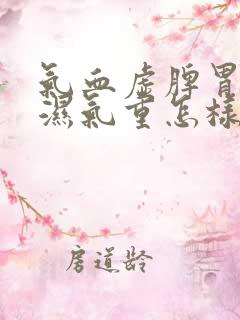 氣血虛脾胃
濕氣重怎樣
房道齡